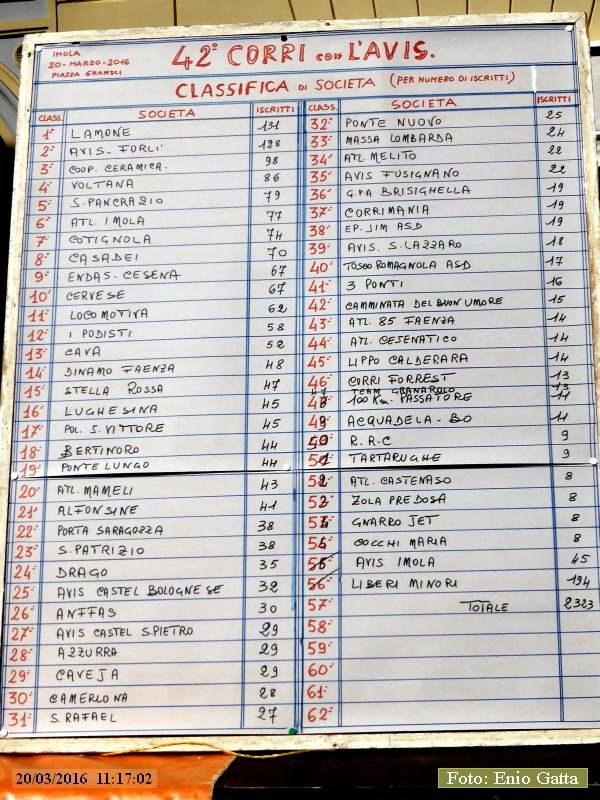 IMOLA
20-MARZO-2016
PIAZZA GRAMSCI
42° CORRI con L'AVIS.
CLASSIFICA DI SOCIETA (PER NUMERO DI ISCRITTI)
CLASS. SOCIETA ISCRITTI
1° LAMONE 131
2° AVIS-FORLI' 128
3° COOP. CERAMICA. 98
4° VOLTANA 86
5° S.PANCRAZIO 79
6° ATL. IMOLA 77
7° COTIGNOLA 74
8° CASADEI 70
9° ENDAS-CESENA 67
10° CERVESE 67
11° LOCOMOTIVA 62
12° I PODISTI 58
13° CAVA 52
14° DINAMO FAENZA 48
15° STELLA ROSSA 47
16° LUGHESINA 45
17° POL. S. VITTORE 45
18° BERTINORO 44
19° PONTELUNGO 44
20° ATL. MAMELI 43
21° ALFONSINE 41
22° PORTA SARAGOZZA 38
23° S. PATRIZIO 38
24° DRAGO 35
25° AVIS CASTEL BOLOGNESE 32
26° ANFFAS 30
27° AVIS CASTEL S.PIETRO 29
28° AZZURRA 29
29° CAVEJA 29
30° CAMERLONA 28
31° S. RAFAEL 27
CLASS. SOCIETA ISCRITTI
32° PONTE NUOVO 25
33° MASSA LOMBARDA 24
34° ATL MELITO 22
35° AVIS FUSIGNANO 22
36° G.PA BRISIGHELLA 19
37° CORRIMANIA 19
38° EP. JIM ASD 19
39° AVIS. S.LAZZARO 18
40° TOSCO ROMAGNOLA ASD 17
41° 3 PONTI 16
42° CAMMINATA DEL BUON UMORE 15
43° ATL. 85 FAENZA 14
44° ATL. CESENATICO 14
45° LIPPO CALDERARA 14
46° CORRI FORREST 13
TEAM GRANAROLO 13
48 100 Km. PASSATORE 11
49 ACQUADELA-BO 11
50 R.R.C 9
51 TARTARUGHE 9
52 ATL. CASTENASO 8
53 ZOLA PREDOSA 8
54 GNARRO JET 8
55 COCCHI MARIA 8
AVIS IMOLA 45
56° LIBERI MINORI 194
57° TOTALE 2323
58°
59°
60°
61°
62°
20/03/2016 11:17:02
Foto: Enio Gatta